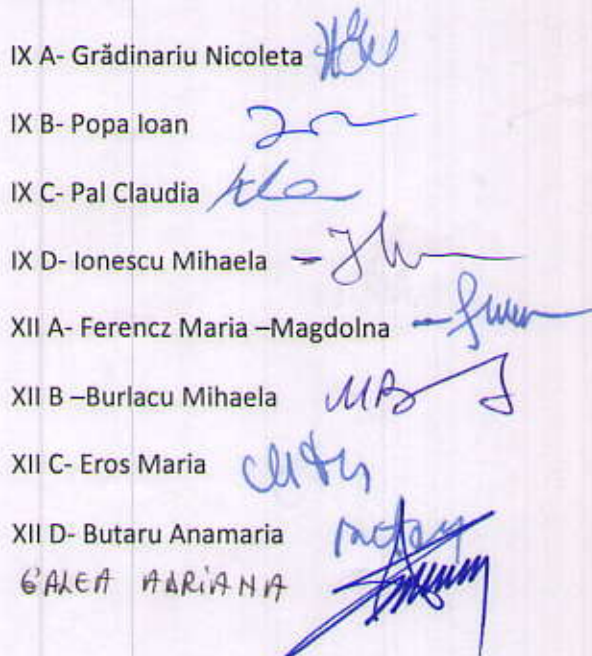 IX A- Grădinariu Nicoleta
IX B- Popa Ioan
IX C- Pal Claudia
IX D- Ionescu Mihaela
XII A- Ferencz Maria –Magdolna
XII B –Burlacu Mihaela
XII C- Eros Maria
XII D- Butaru Anamaria
GALEA ADRIANA